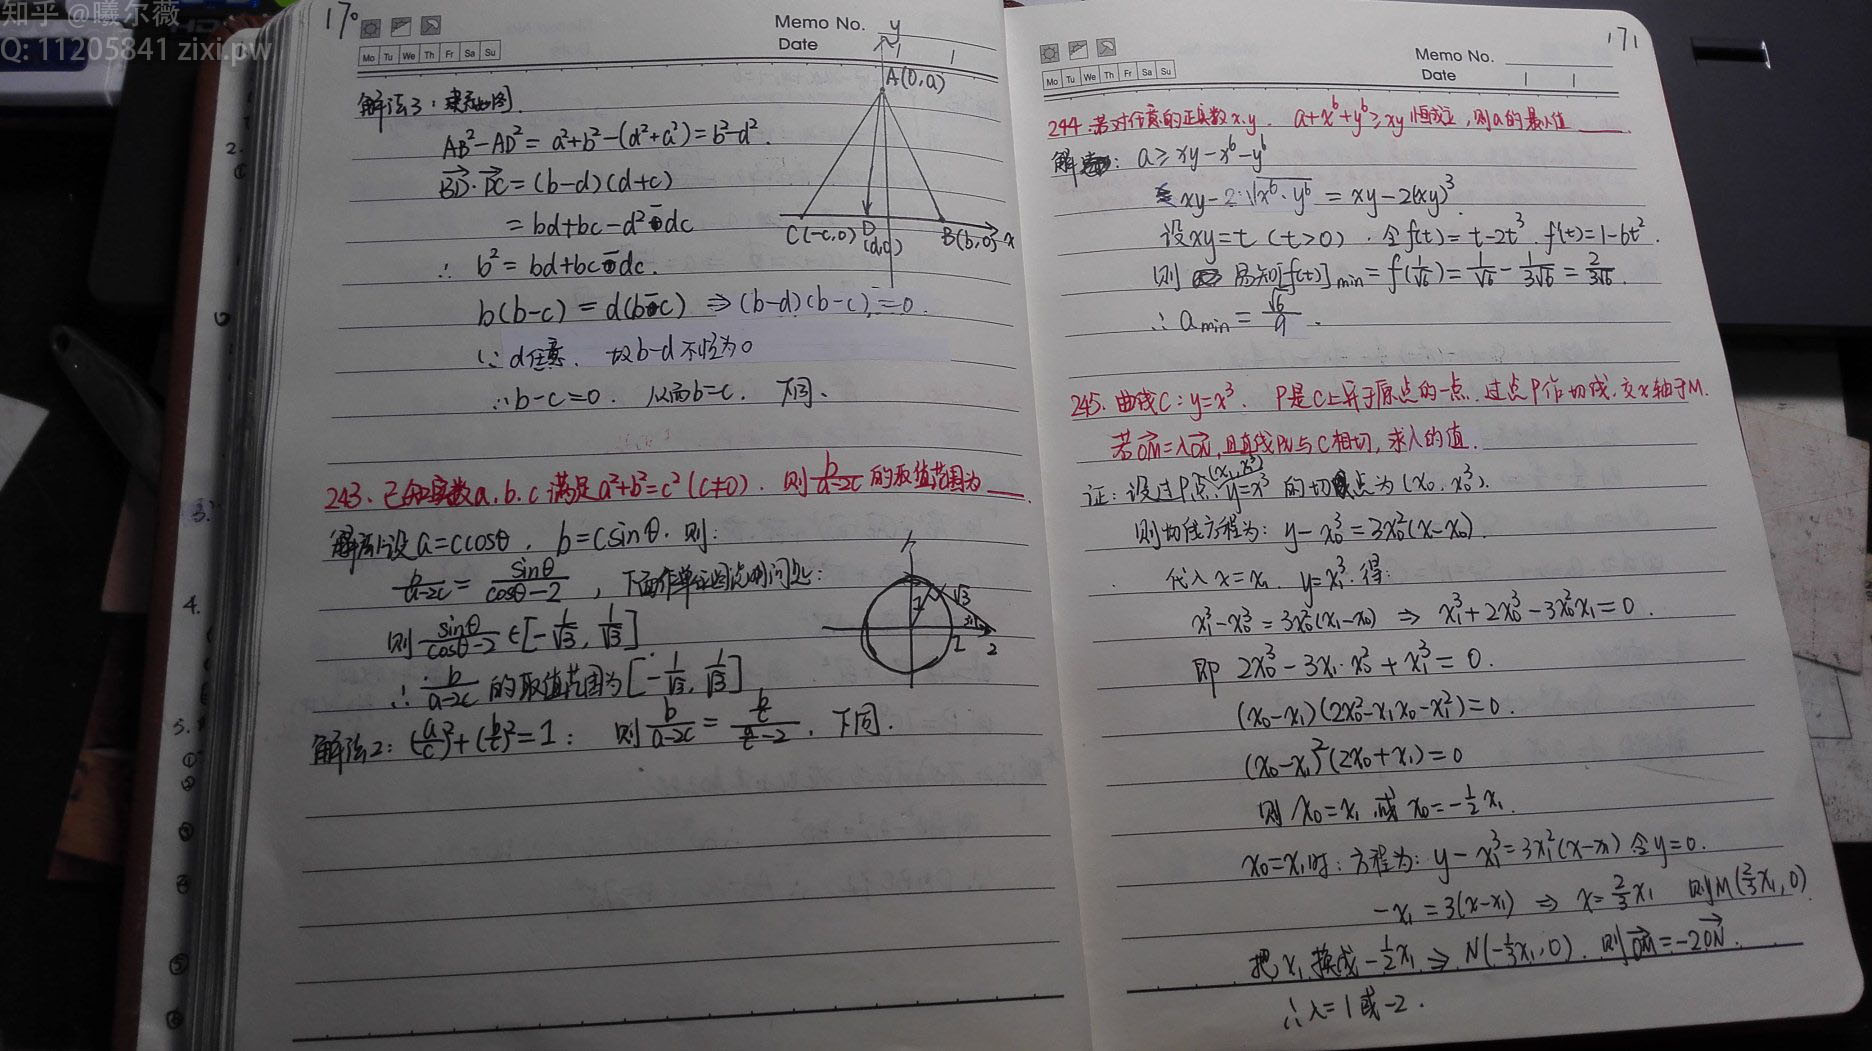 知乎 @曦尔薇
Q: 11205841 zixi.pw
170
Memo No.
Date
Mo Tu We Th Fr Sa Su
解法3：建系如图.
AB²-AD²=a²+b²-(d²+a²)=b²-d².
BD·DC=(b-d)(d+c)
=bd+bc-d²-dc
∴ b²=bd+bc-dc.
b(b-c)=d(b-c) ⇒(b-d)(b-c)=0.
∵ d任意. 故b-d不恒为0
∴b-c=0. 从而b=c. 下同.
y
A(0,a)
C(-c,0) D B(b,0) x
(d,0)
243. 已知实数a.b.c满足a²+b²=c²(c≠0). 则b/(a-2c)的取值范围为____.
解法1:设a=ccosθ, b=csinθ. 则:
b/(a-2c)=sinθ/(cosθ-2), 下面作单位圆说明问题:
则sinθ/(cosθ-2)∈[-1/√3, 1/√3]
∴b/(a-2c)的取值范围为[-1/√3, 1/√3]
解法2: (a/c)²+(b/c)²=1: 则b/(a-2c)=(b/c)/(a/c-2). 下同.
1 √3
1 2
171
Memo No.
Date
Mo Tu We Th Fr Sa Su
244.若对任意的正实数x.y. a+x⁶+y⁶≥xy恒成立,则a的最小值____
解: a≥xy-x⁶-y⁶
xy-2·√(x⁶·y⁶)=xy-2(xy)³.
设xy=t (t>0). 令f(t)=t-2t³. f'(t)=1-6t².
则 易知[f(t)]min=f(1/√6)=1/√6-1/3√6=2/3√6.
∴amin=√6/9.
245. 曲线C: y=x³. P是C上异于原点的一点. 过点P作切线.交x轴于M.
若OM=λON,且直线PN与C相切,求λ的值.
证: 设过P点(x₁,x₁³) y=x³的切点为(x₀,x₀³).
则切线方程为: y-x₀³=3x₀²(x-x₀).
代入x=x₁ y=x₁³.得:
x₁³-x₀³=3x₀²(x₁-x₀) ⇒ x₁³+2x₀³-3x₀²x₁=0.
即 2x₀³-3x₁·x₀²+x₁³=0.
(x₀-x₁)(2x₀²-x₁x₀-x₁²)=0.
(x₀-x₁)²(2x₀+x₁)=0
则x₀=x₁或x₀=-1/2x₁.
x₀=x₁时:方程为: y-x₁³=3x₁²(x-x₁) 令y=0.
-x₁=3(x-x₁) ⇒ x=2/3x₁ 则M(2/3x₁,0)
把x₁换成-1/2x₁ ⇒ N(-1/3x₁,0). 则OM=-2ON.
∴λ=1或-2.